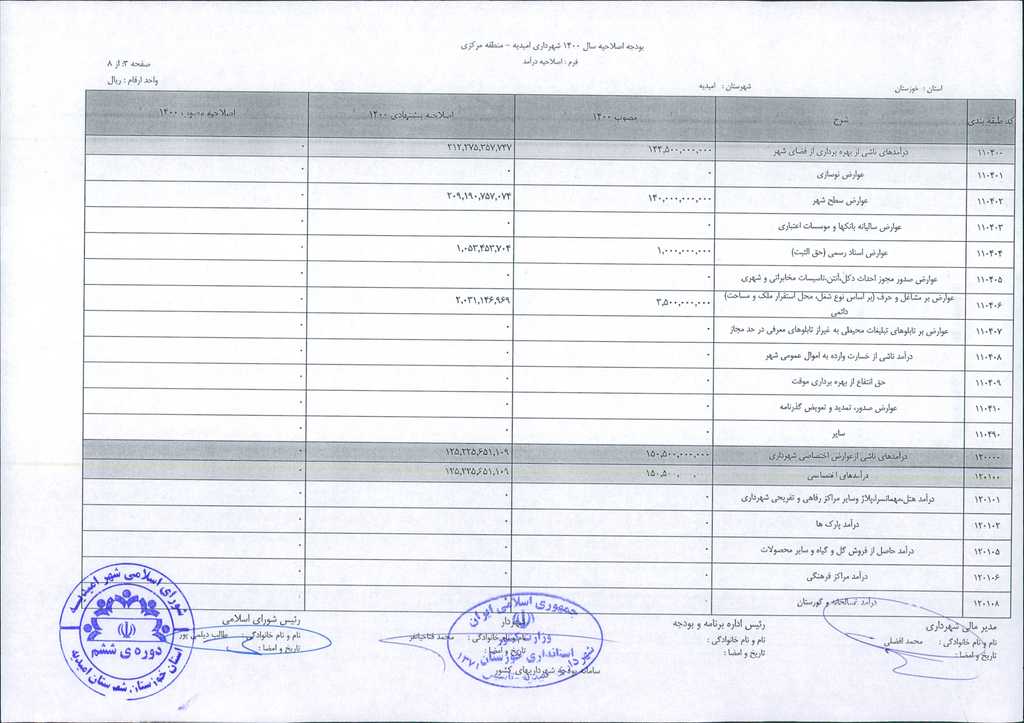 بودجه اصلاحیه سال ۱۴۰۰ شهرداری امیدیه - منطقه مرکزی
فرم : اصلاحیه درآمد
صفحه ۳ از ۸
واحد ارقام : ریال
استان : خوزستان شهرستان : امیدیه
کد طبقه بندی شرح مصوب ۱۴۰۰ اصلاحیه پیشنهادی ۱۴۰۰ اصلاحیه مصوب ۱۴۰۰
۱۱۰۴۰۰ درآمدهای ناشی از بهره برداری از فضای شهر ۱۴۴,۵۰۰,۰۰۰,۰۰۰ ۲۱۲,۲۷۵,۳۵۷,۷۴۷ ۰
۱۱۰۴۰۱ عوارض نوسازی ۰ ۰ ۰
۱۱۰۴۰۲ عوارض سطح شهر ۱۴۰,۰۰۰,۰۰۰,۰۰۰ ۲۰۹,۱۹۰,۷۵۷,۰۷۴ ۰
۱۱۰۴۰۳ عوارض سالیانه بانکها و موسسات اعتباری ۰ ۰ ۰
۱۱۰۴۰۴ عوارض اسناد رسمی (حق الثبت) ۱,۰۰۰,۰۰۰,۰۰۰ ۱,۰۵۳,۴۵۳,۷۰۴ ۰
۱۱۰۴۰۵ عوارض صدور مجوز احداث دکل،آنتن،تاسیسات مخابراتی و شهری ۰ ۰ ۰
۱۱۰۴۰۶ عوارض بر مشاغل و حرف (بر اساس نوع شغل، محل استقرار ملک و مساحت) دائمی ۳,۵۰۰,۰۰۰,۰۰۰ ۲,۰۳۱,۱۴۶,۹۶۹ ۰
۱۱۰۴۰۷ عوارض بر تابلوهای تبلیغات محیطی به غیراز تابلوهای معرفی در حد مجاز ۰ ۰ ۰
۱۱۰۴۰۸ درآمد ناشی از خسارت وارده به اموال عمومی شهر ۰ ۰ ۰
۱۱۰۴۰۹ حق انتفاع از بهره برداری موقت ۰ ۰ ۰
۱۱۰۴۱۰ عوارض صدور، تمدید و تعویض گذرنامه ۰ ۰ ۰
۱۱۰۴۹۰ سایر ۰ ۰ ۰
۱۲۰۰۰۰ درآمدهای ناشی ازعوارض اختصاصی شهرداری ۱۵۰,۵۰۰,۰۰۰,۰۰۰ ۱۲۵,۲۲۵,۶۵۱,۱۰۹ ۰
۱۲۰۱۰۰ درآمدهای اختصاصی ۱۵۰,۵۰۰, ۱۲۵,۲۲۵,۶۵۱,۱۰۹ ۰
۱۲۰۱۰۱ درآمد هتل،مهمانسرا،پلاژ وسایر مراکز رفاهی و تفریحی شهرداری ۰ ۰ ۰
۱۲۰۱۰۲ درآمد پارک ها ۰ ۰ ۰
۱۲۰۱۰۵ درآمد حاصل از فروش گل و گیاه و سایر محصولات ۰ ۰ ۰
۱۲۰۱۰۶ درآمد مراکز فرهنگی ۰ ۰ ۰
۱۲۰۱۰۸ درآمد غسالخانه و گورستان ۰ ۰
مدیر مالی شهرداری
نام و نام خانوادگی : محمد افضلی
تاریخ و امضا :
رئیس اداره برنامه و بودجه
نام و نام خانوادگی :
تاریخ و امضا :
نام خانوادگی : محمد فتاحیانفر
تاریخ و امضا :
رئیس شورای اسلامی
نام و نام خانوادگی : طالب دیلمی پور
تاریخ و امضا :
سامانه بودجه شهرداریهای کشور
جمهوری اسلامی ایران
وزارت کشور
استانداری خوزستان
شورای اسلامی شهر امیدیه
دوره ی ششم
استان خوزستان شهرستان امیدیه